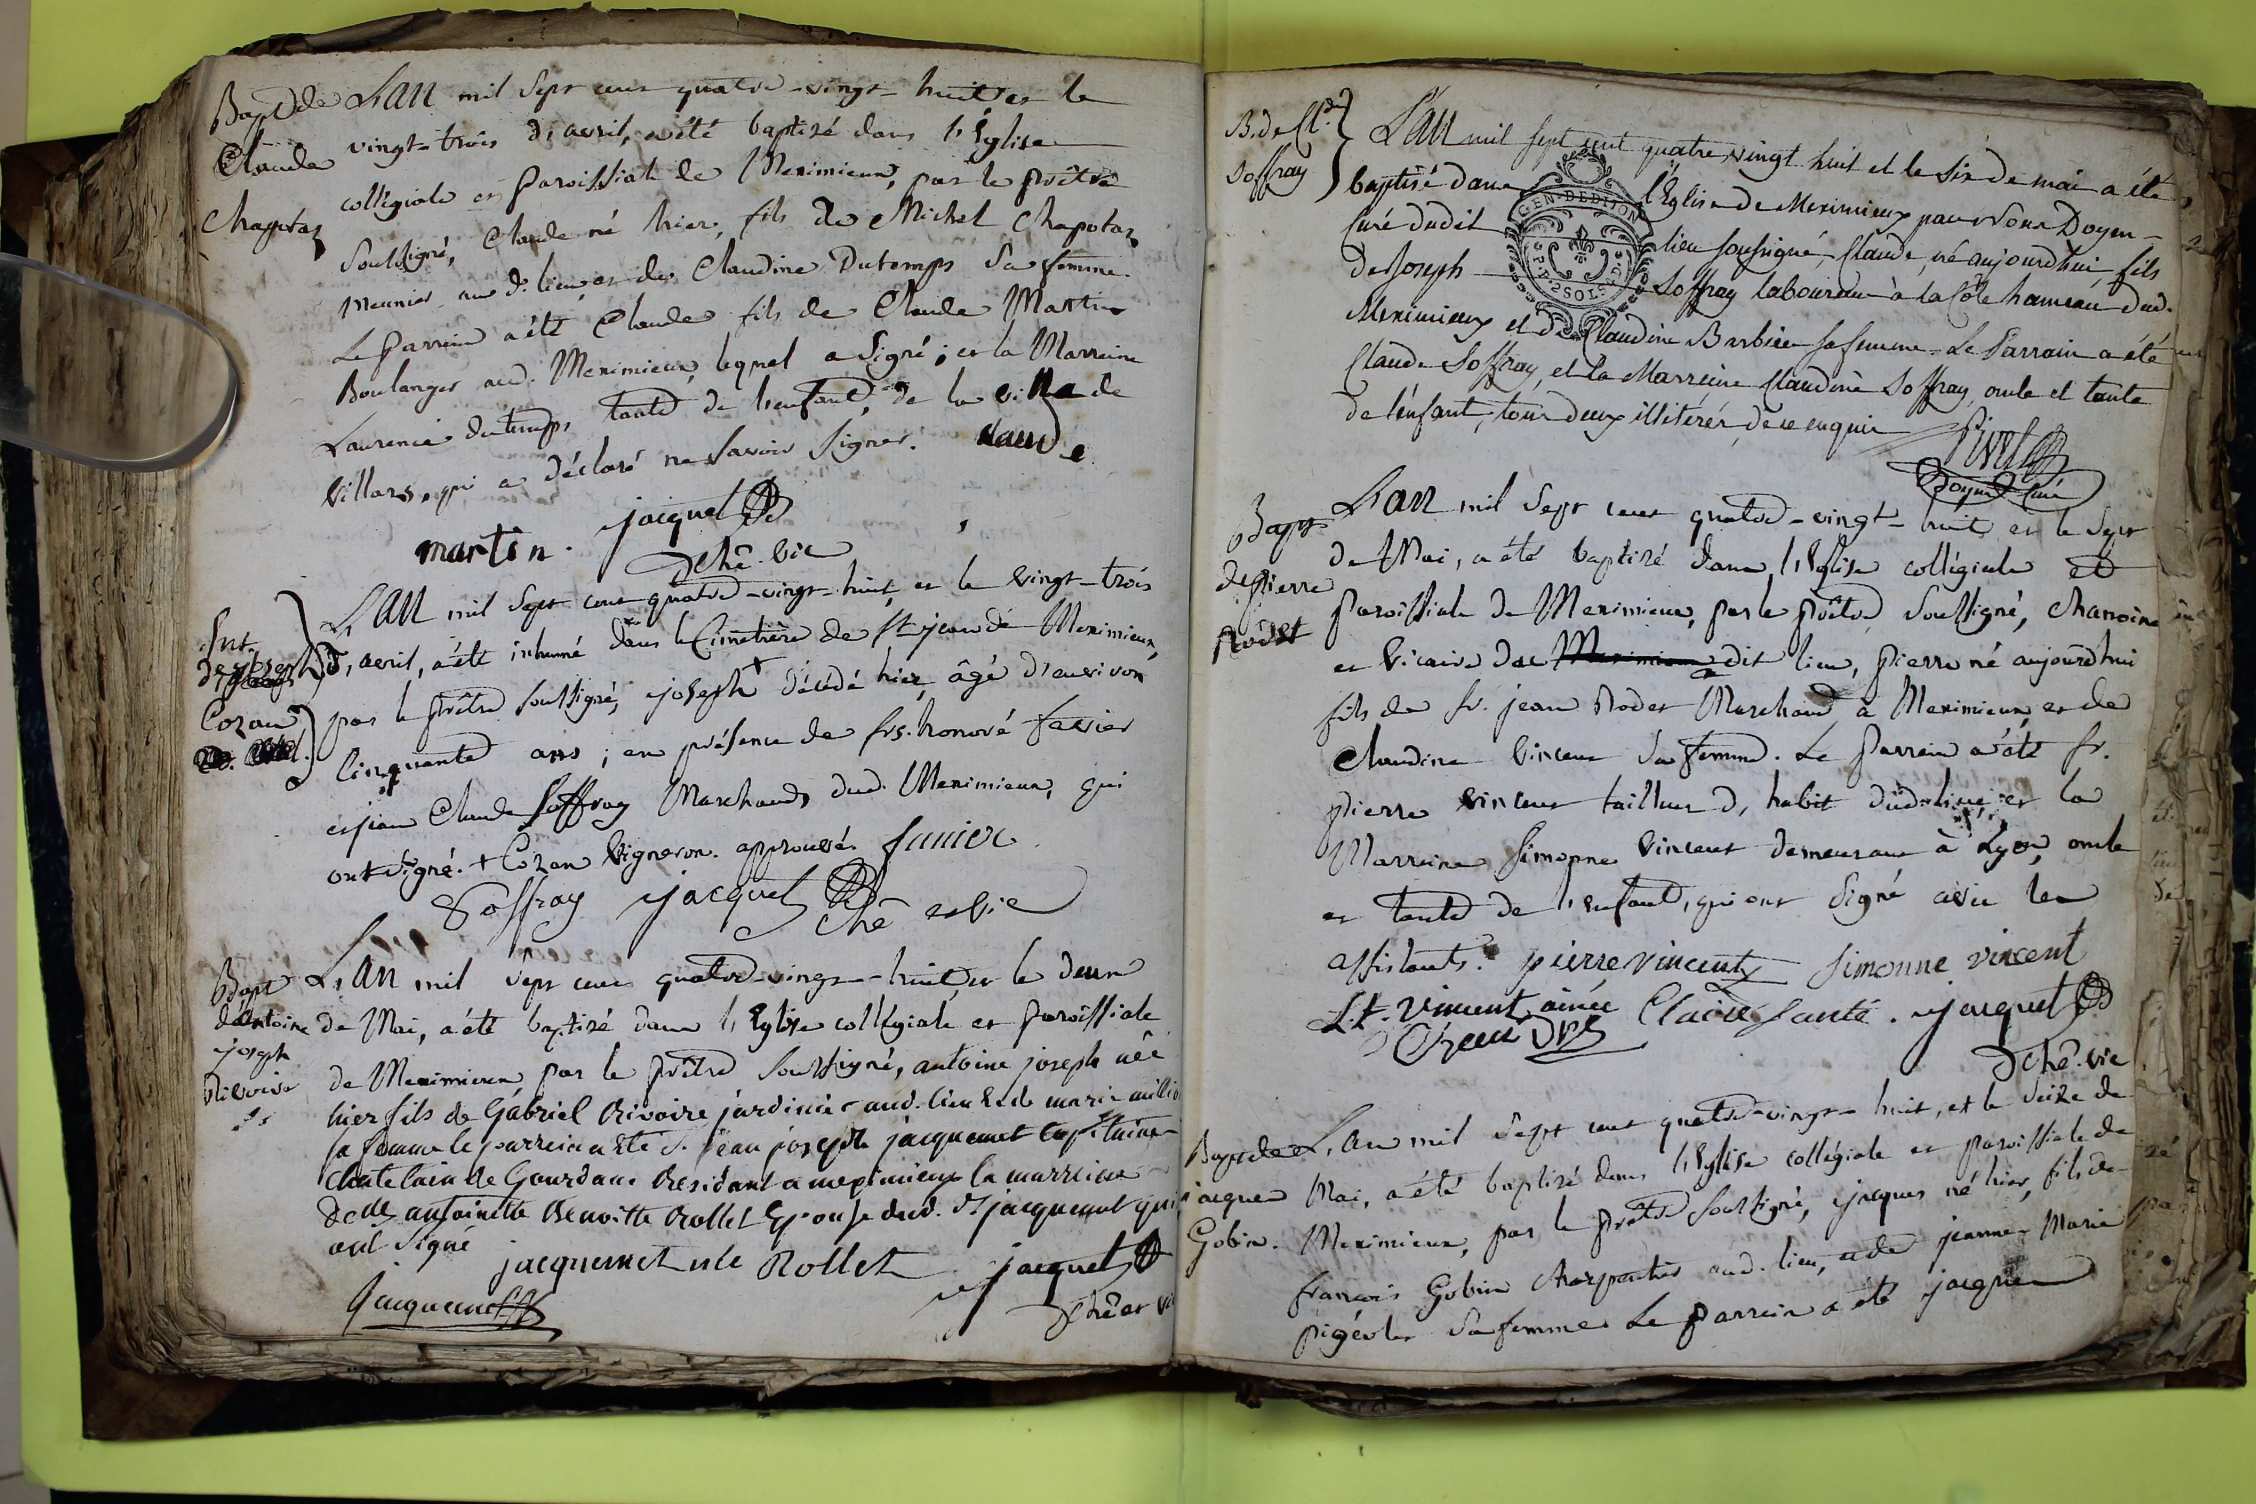 Bapt de
Claude
Chapotaz
L'an mil sept cent quatre-vingt-huit et le
vingt-trois d'avril, a été baptisé dans l'Eglise
collégiale et Paroissiale de Meximieux, par le prêtre
soussigné, Claude né hier, fils de Michel Chapotaz
Meunier aud. lieu, et de Claudine Dutemps sa femme.
Le Parrein a été Claude fils de Claude Martin
Boulanger aud. Meximieux, lequel a signé; et la Marreine
Laurence dutemps, tante de l'enfant, de la ville de
Villars, qui a déclaré ne savoir signer. claude
martin. jacquet
Chê. vic
Int.
de joseph
Cozan
L'an mil sept cent quatre-vingt-huit, et le vingt-trois
d'avril, a été inhumé dans le Cimetière de St jean de Meximieux,
par le prêtre soussigné, joseph + décédé hier, âgé d'environ
Cinquante ans; en présence de frs. honoré favier
et jean Claude Soffray Marchands dud. Meximieux, qui
ont signé. + Cozan Vigneron. approuvé. favier
Soffray jacquet
Chê et vic
Bapt
d'antoine
joseph
Rivoire
L'an mil sept cent quatre-vingt-huit, et le deux
de Mai, a été baptizé dans l'Eglise collégiale et paroissiale
de Meximieux par le prêtre soussigné, antoine joseph né
hier fils de Gabriel Rivoire jardinier aud. lieu et de marie
sa femme le parrein a Eté S. jean joseph jacquemet capitaine
chatelain de Gourdans Residant a meximieux la marreine
delle antoinette Benoitte Rollet Epouse dud. Sr jacquemet qui
ont signé
jacquemet née Rollet jacquet
jacquemet Chê et vic
B. de Cl.de
Soffray
L'an mil sept cent quatre vingt huit et le six de mai a été
baptisé dans l'Eglise de Meximieux par Nous Doyen
Curé dudit lieu soussigné, Claude, né aujourdhui fils
de Joseph Soffray laboureur à la Côte hameau dud.
Meximieux et de Claudine Barbier sa femme. Le Parrain a été
Claude Soffray, et la Marreine Claudine Soffray, oncle et tante
de l'enfant, tous deux illitérés, de ce enquis
GEN. DE DIJON
Doyen Curé
Bapt
de pierre
Rodet
L'an mil sept cent quatre-vingt-huit et le sept
de Mai, a été baptizé dans l'Eglise collégiale et
paroissiale de Meximieux, par le prêtre soussigné, Chanoine
et Vicaire du Meximieux dit lieu, pierre né aujourdhui
fils de sr. jean Rodet Marchand à Meximieux et de
Claudine Vincent sa femme. Le parrein a été sr.
pierre Vincent tailleur d'habit dud. lieu, et la
Marreine Simonne Vincent demeurant à Lyon, oncle
et tante de l'enfant, qui ont signé avec les
assistants. pierre vincent simonne vincent
vincent ainée Claire Santé. jacquet
Chê. vic
Bapt de
jacques
Gobin.
L'an mil sept cent quatre-vingt-huit, et le seize de
Mai, a été baptizé dans l'Eglise collégiale et paroissiale de
Meximieux, par le prêtre soussigné, jacques né hier, fils de
françois Gobin charpentier aud. lieu, et de jeanne Marie
sa femme Le parrein a été jacques